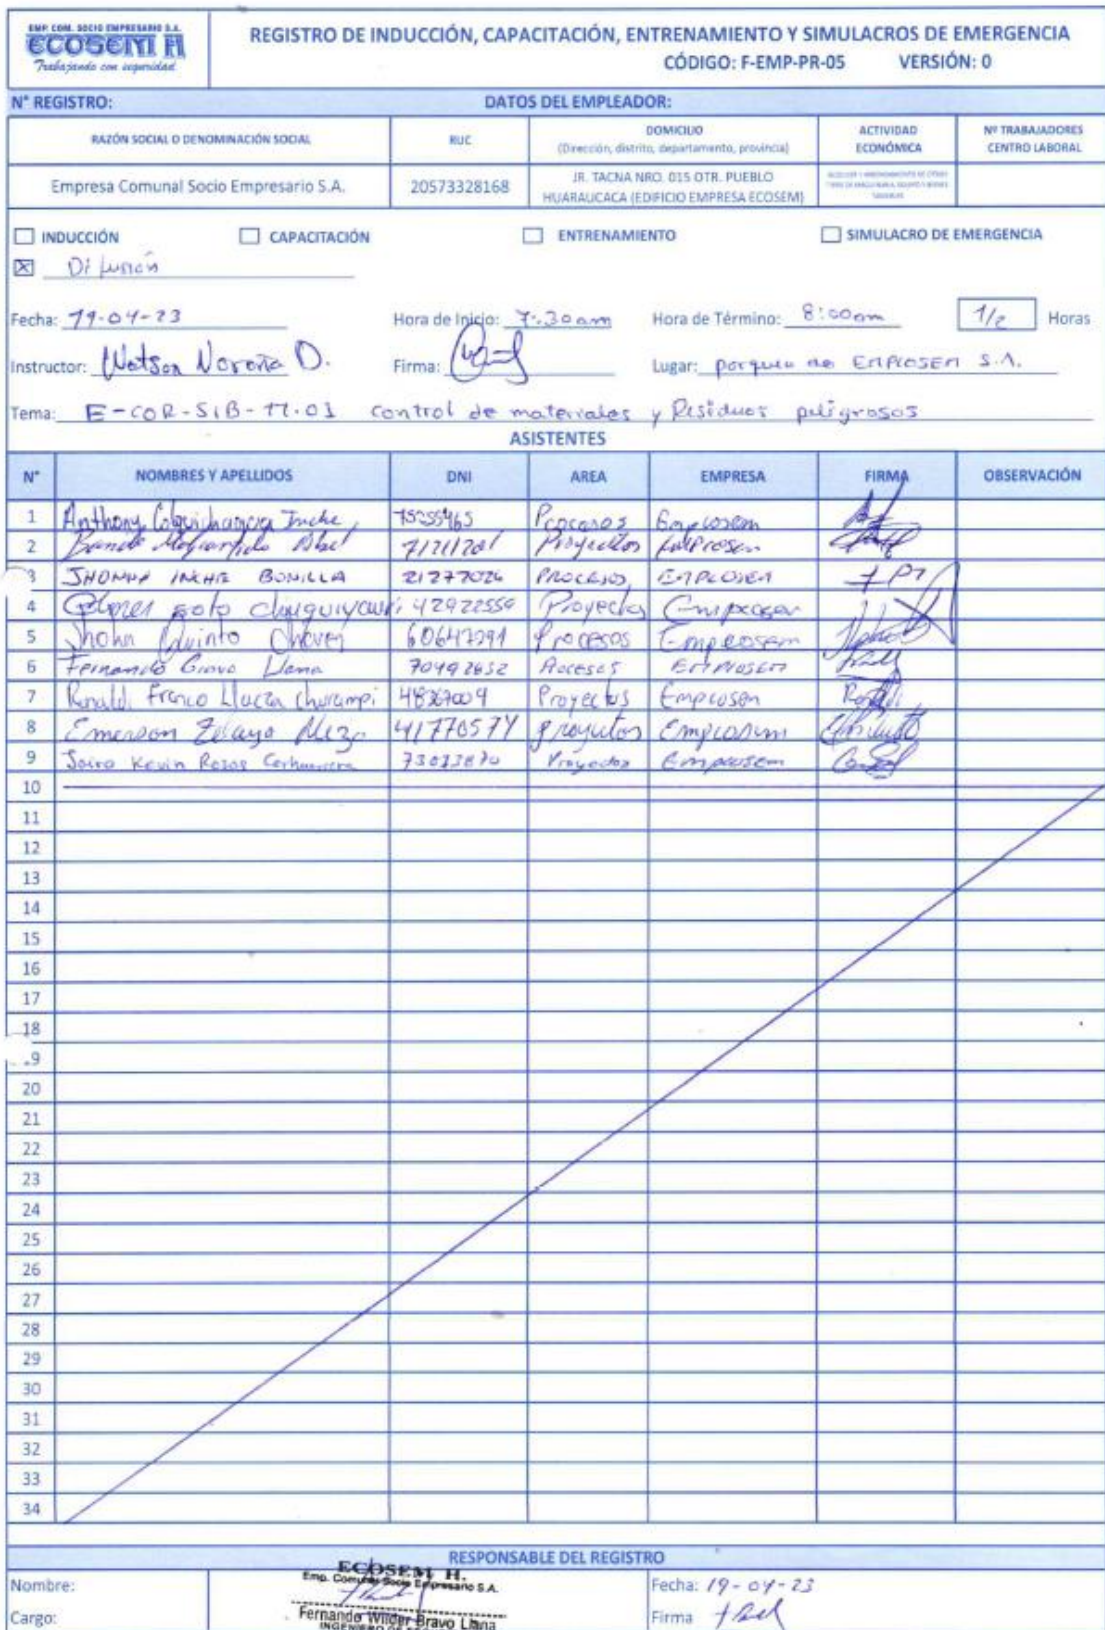 EMP. COM. SOCIO EMPRESARIO S.A.
ECOSEM H
Trabajando con seguridad
REGISTRO DE INDUCCIÓN, CAPACITACIÓN, ENTRENAMIENTO Y SIMULACROS DE EMERGENCIA
CÓDIGO: F-EMP-PR-05 VERSIÓN: 0
N° REGISTRO: DATOS DEL EMPLEADOR:
RAZÓN SOCIAL O DENOMINACIÓN SOCIAL RUC DOMICILIO (Dirección, distrito, departamento, provincia) ACTIVIDAD ECONÓMICA Nº TRABAJADORES CENTRO LABORAL
Empresa Comunal Socio Empresario S.A. 20573328168 JR. TACNA NRO. 015 OTR. PUEBLO HUARAUCACA (EDIFICIO EMPRESA ECOSEM)
INDUCCIÓN CAPACITACIÓN ENTRENAMIENTO SIMULACRO DE EMERGENCIA
Difusión
Fecha: 19-04-23 Hora de Inicio: 7:30am Hora de Término: 8:00am 1/2 Horas
Instructor: Watson Noroña D. Firma: Lugar: parqueo de EMPCOSEM S.A.
Tema: E-COR-SIB-11.01 control de materiales y Residuos peligrosos
ASISTENTES
N° NOMBRES Y APELLIDOS DNI AREA EMPRESA FIRMA OBSERVACIÓN
1 Anthony Inche Procesos Empcosem
2 Abel Proyectos
3 JHONNY INCHE BONILLA 21277026 PROCESOS EMPCOSEM
4 soto 42922550 Proyectos Empcosem
5 Jhohn Quinto Chavez Procesos Empcosem
6 Fernando Llana EMPCOSEM
7 Franco Llacza Churampi Proyectos Empcosem
8 Emerson Zelaya Meza 41770574 proyectos Empcosem
9 Kevin Rosas Proyectos Empcosem
10
11
12
13
14
15
16
17
18
20
21
22
23
24
25
26
27
28
29
30
31
32
33
34
RESPONSABLE DEL REGISTRO
Nombre: Fecha: 19-04-23
Cargo: Firma
ECOSEM H.
Emp. Comunal Socio Empresario S.A.
Fernando Wilder Bravo Llana